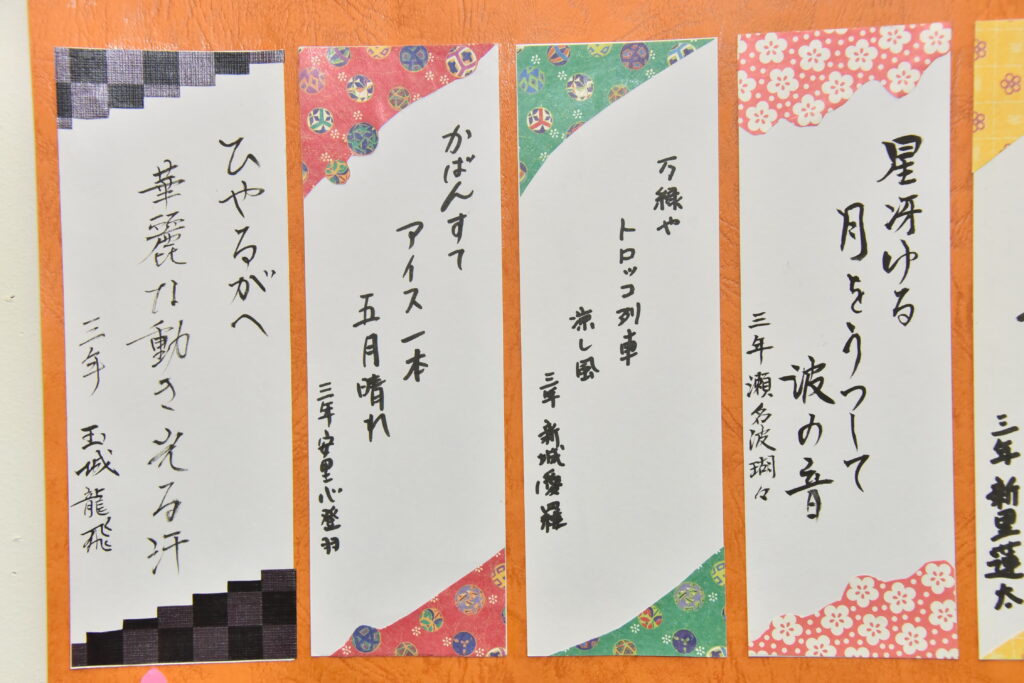 三年 新里蓮太
星冴ゆる
月をうつして
波の音
三年 瀬名波瑚々
万緑や
トロッコ列車
涼し風
三年 新城優羅
かばんすて
アイス一本
五月晴れ
三年 安里心登羽
ひやるがへ
華麗な動き光る汗
三年 玉城龍飛